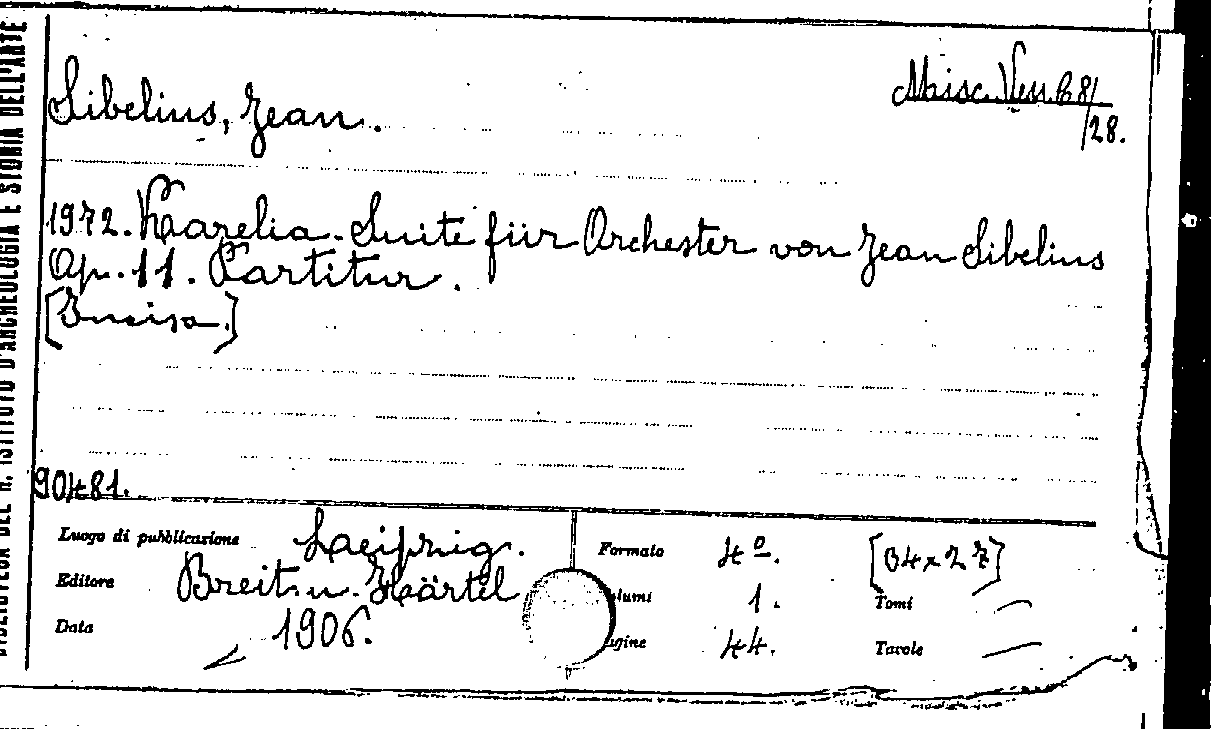 BIBLIOTECA DEL R. ISTITUTO D'ARCHEOLOGIA E STORIA DELL'ARTE
Sibelius, Jean.
Misc. Ven. C 8/
/28.
1972. Karelia-Suite für Orchester von Jean Sibelius
Op. 11. Partitur.
[Incisa.]
90481.
Luogo di pubblicazione Leipzig.
Editore Breit. u. Härtel
Data 1906.
Formato 4º. [34x27]
lumi 1. Tomi —
agine 44. Tavole —